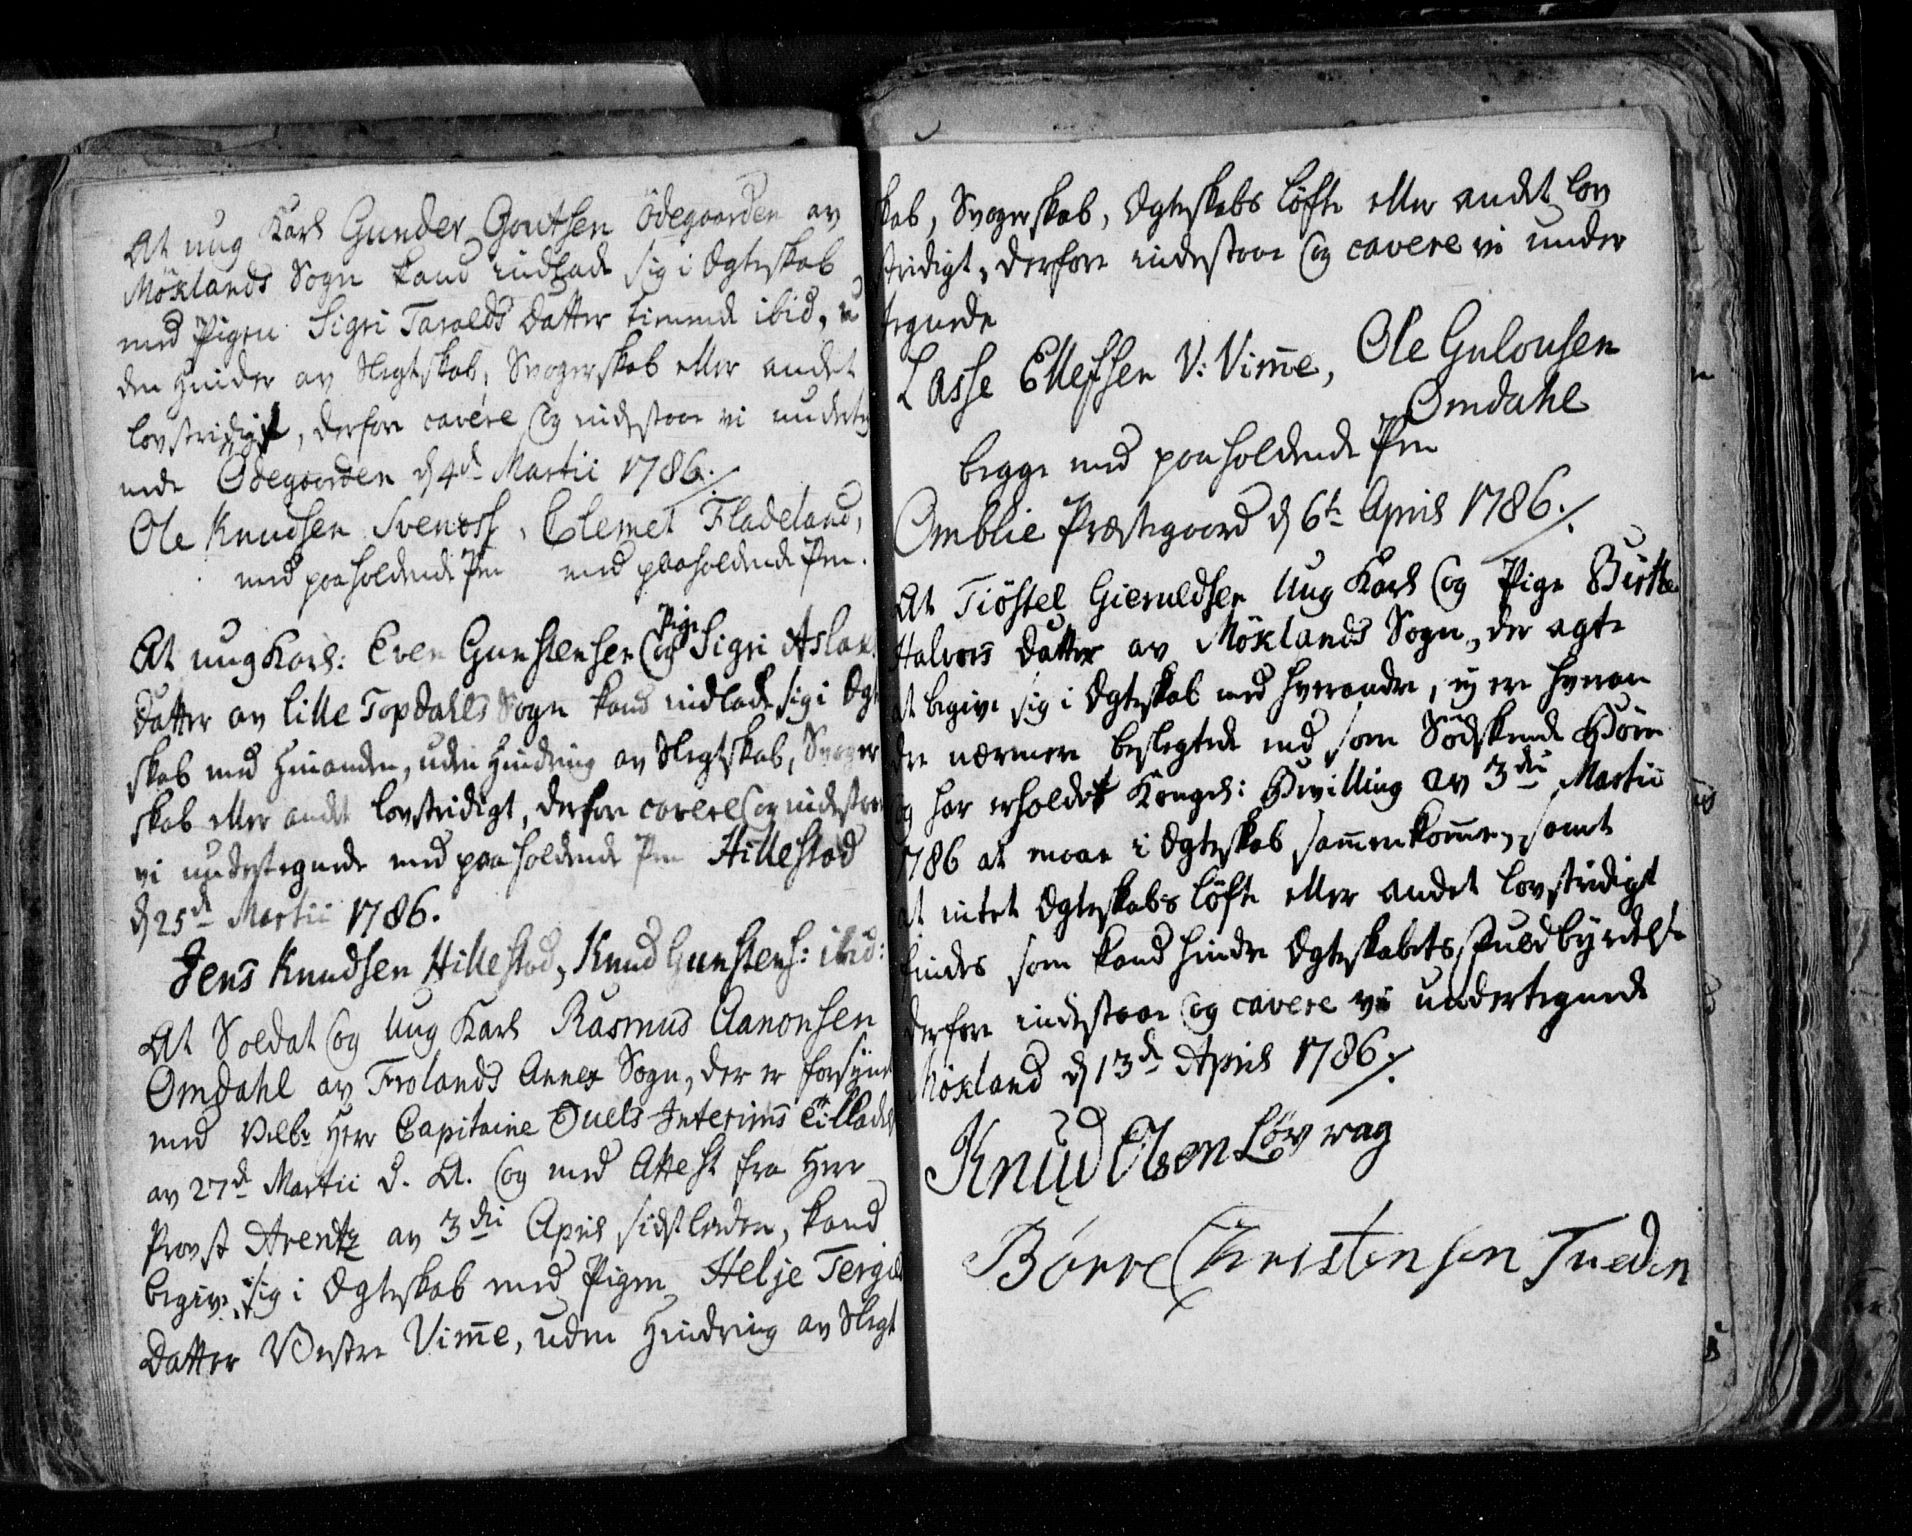 At ung Karl Gunder Goutsen Ödegaarden av
Möklands Sogn kand indlade sig i Ægteskab
med Pigen Sigri Taralds Datter tienende ibid, u
den Hinder av Slegtskab, Svogerskab eller andet
lovstridigt, derfore cavere og indestaae vi underteg
nede Ödegaarden d 4de Martii 1786./.
Ole Knudsen Svenoss, Clemet Fladeland,
med paaholdende Pen med paaholdende Pen.
At ung Karl: Even Gunstensen og Pige Sigri Aslax
Datter av lille Topdahls Sogn kand indlade sig i Ægte
skab med Hinanden, uden Hindring av Slegtskab, Svoger
skab eller andet lovstridigt, derfore cavere og indestaae
vi undertegnede med paaholdende Pen Hillestad
d 25de Martii 1786.
Jens Knudsen Hillestad, Knud Gunstens: ibid:
At Soldat og Ung Karl Rasmus Aanonsen
Omdahl av Frolands Annex Sogn, der er forsÿnet
med Velbr Herr Capitaine Duels Interims Tilladel
av 27de Martii d. A. og med Attest fra Herr
Provst Arentz av 3die April sidstleden, kand
begive sig i Ægteskab med Pigen Helje Tergie
Datter Vestre Vim̅e, uden Hindring av Slegt
skab, Svogerskab, Ægteskabs Løfte eller andet lov
stridigt, derfore indestaae og cavere vi under
tegnede
Lasse Ellefsen V: Vim̅e, Ole Gulousen
Omdahl
begge med paaholdende Pen
Omblie Præstegaard d 6te April 1786./.
At Tiöstel Gieruldsen Ung Karl og Pige Birthe
Halvors Datter av Möklands Sogn, der agte
at begive sig i Ægteskab med hverandre, ej ere hveran
dre nærmere beslegtede end som Södskende Börn
og har erholdet Kongel: Bevilling av 3die Martii
1786 at maae i Ægteskab sam̅enkom̅e, samt
at intet Ægteskabs Löfte eller andet lovstridigt
findes som kand hindre Ægteskabets Fuldbyrdelse
derfore indestaae og cavere vi undertegnede
Mökland d 13de April 1786./.
Knud Olsen Løv rag
Börre Christensen Tueden